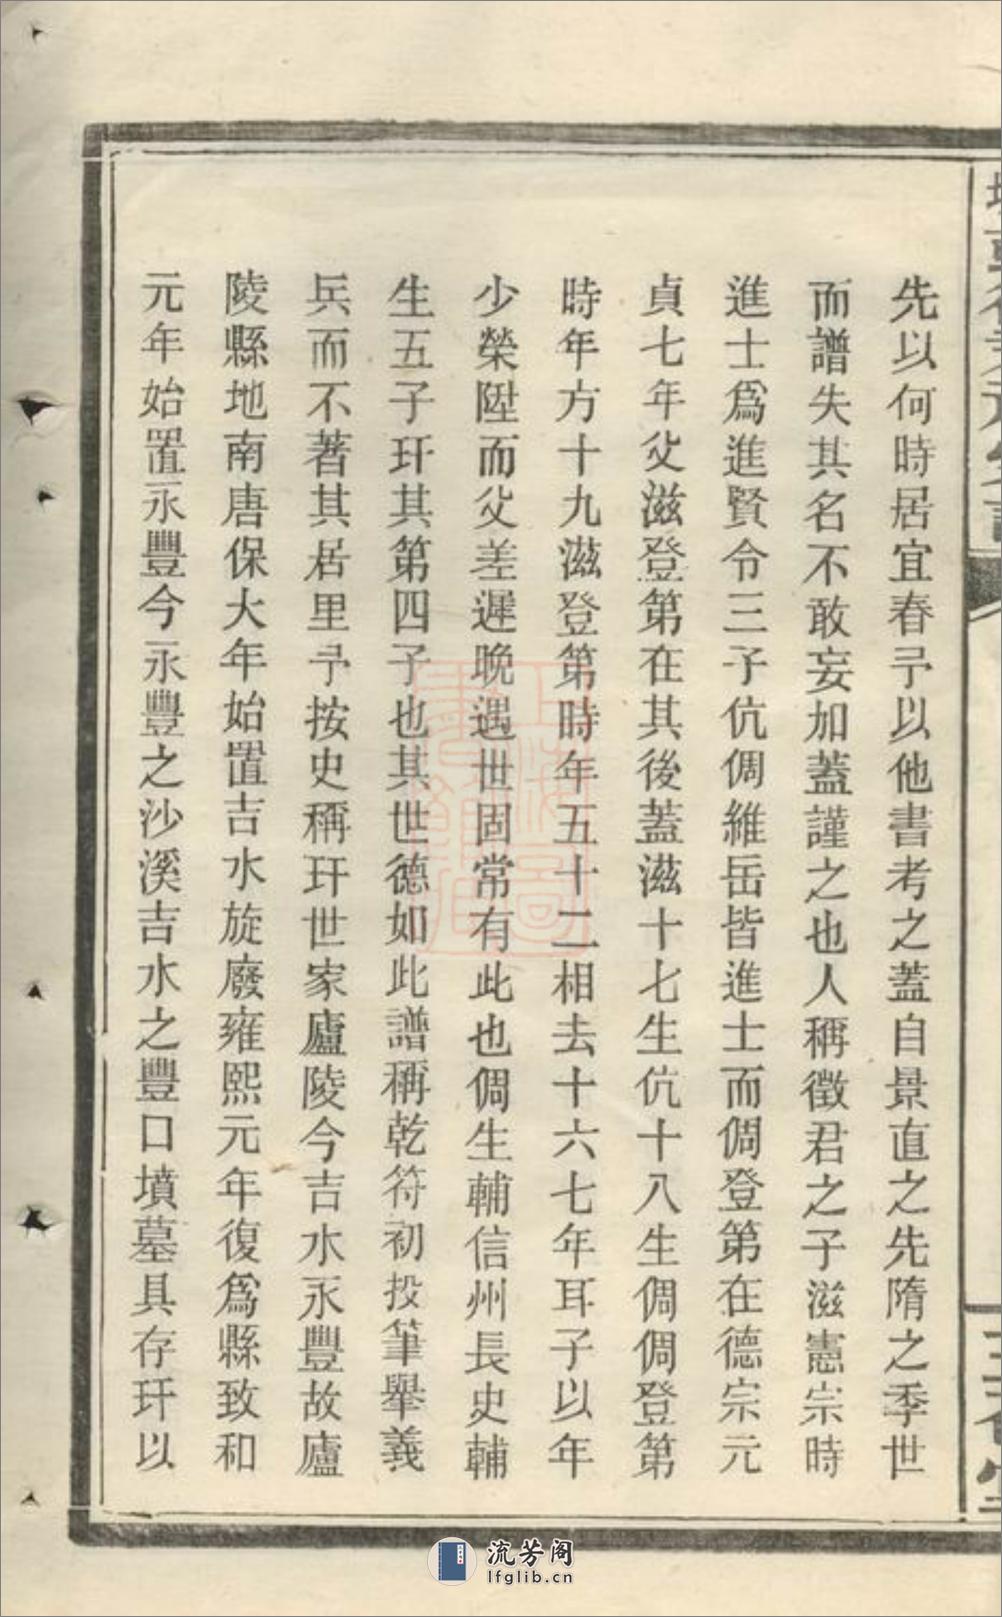 先以何時居宜春予以他書考之蓋自景直之先隋之季世
而譜失其名不敢妄加蓋謹之也人稱徵君之子滋憲宗時
進士爲進賢令三子伉倜維岳皆進士而倜登第在德宗元
貞七年父滋登第在其後蓋滋十七生伉十八生倜倜登第
時年方十九滋登第時年五十二相去十六七年耳子以年
少榮陞而父差遲晚遇世固常有此也倜生輔信州長史輔
生五子玕其第四子也其世德如此譜稱乾符初投筆舉義
兵而不著其居里予按史稱玕世家廬陵今吉水永豐故廬
陵縣地南唐保大年始置吉水旋廢雍熙元年復爲縣致和
元年始置永豐今永豐之沙溪吉水之豐口墳墓具存玕以
流芳阁
lfglib.cn